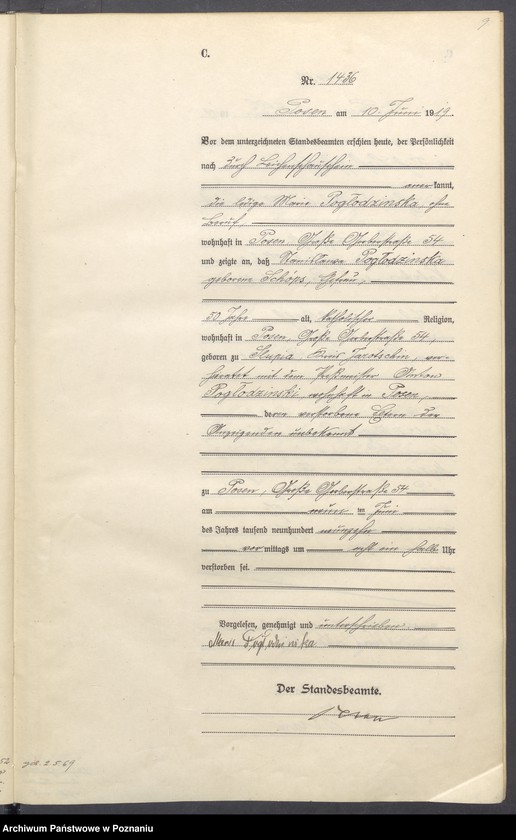 9
C.
Nr. 1436
Posen am 10. Juni 1919.
Vor dem unterzeichneten Standesbeamten erschien heute, der Persönlichkeit
nach durch Leichenschauschein
anerkannt,
die ledige Marie Pogłodzinska, ohne
Beruf,
wohnhaft in Posen Große Gerberstraße 54
und zeigte an, daß Stanislawa Pogłodzinska
geborene Schöps, Ehefrau,
50 Jahre alt, katholischer Religion,
wohnhaft in Posen, Große Gerberstraße 54,
geboren zu Slupia Kreis Jarotschin, ver-
heiratet mit dem Anton
Pogłodzinski, wohnhaft in Posen,
deren verstorbene Eltern der
Anzeigenden unbekannt
zu Posen, Große Gerberstraße 54
am neun ten Juni
des Jahres tausend neunhundert neunzehn
vormittags um acht ein halb Uhr
verstorben sei.
Vorgelesen, genehmigt und unterschrieben.
Der Standesbeamte.
2.5.69
Archiwum Państwowe w Poznaniu